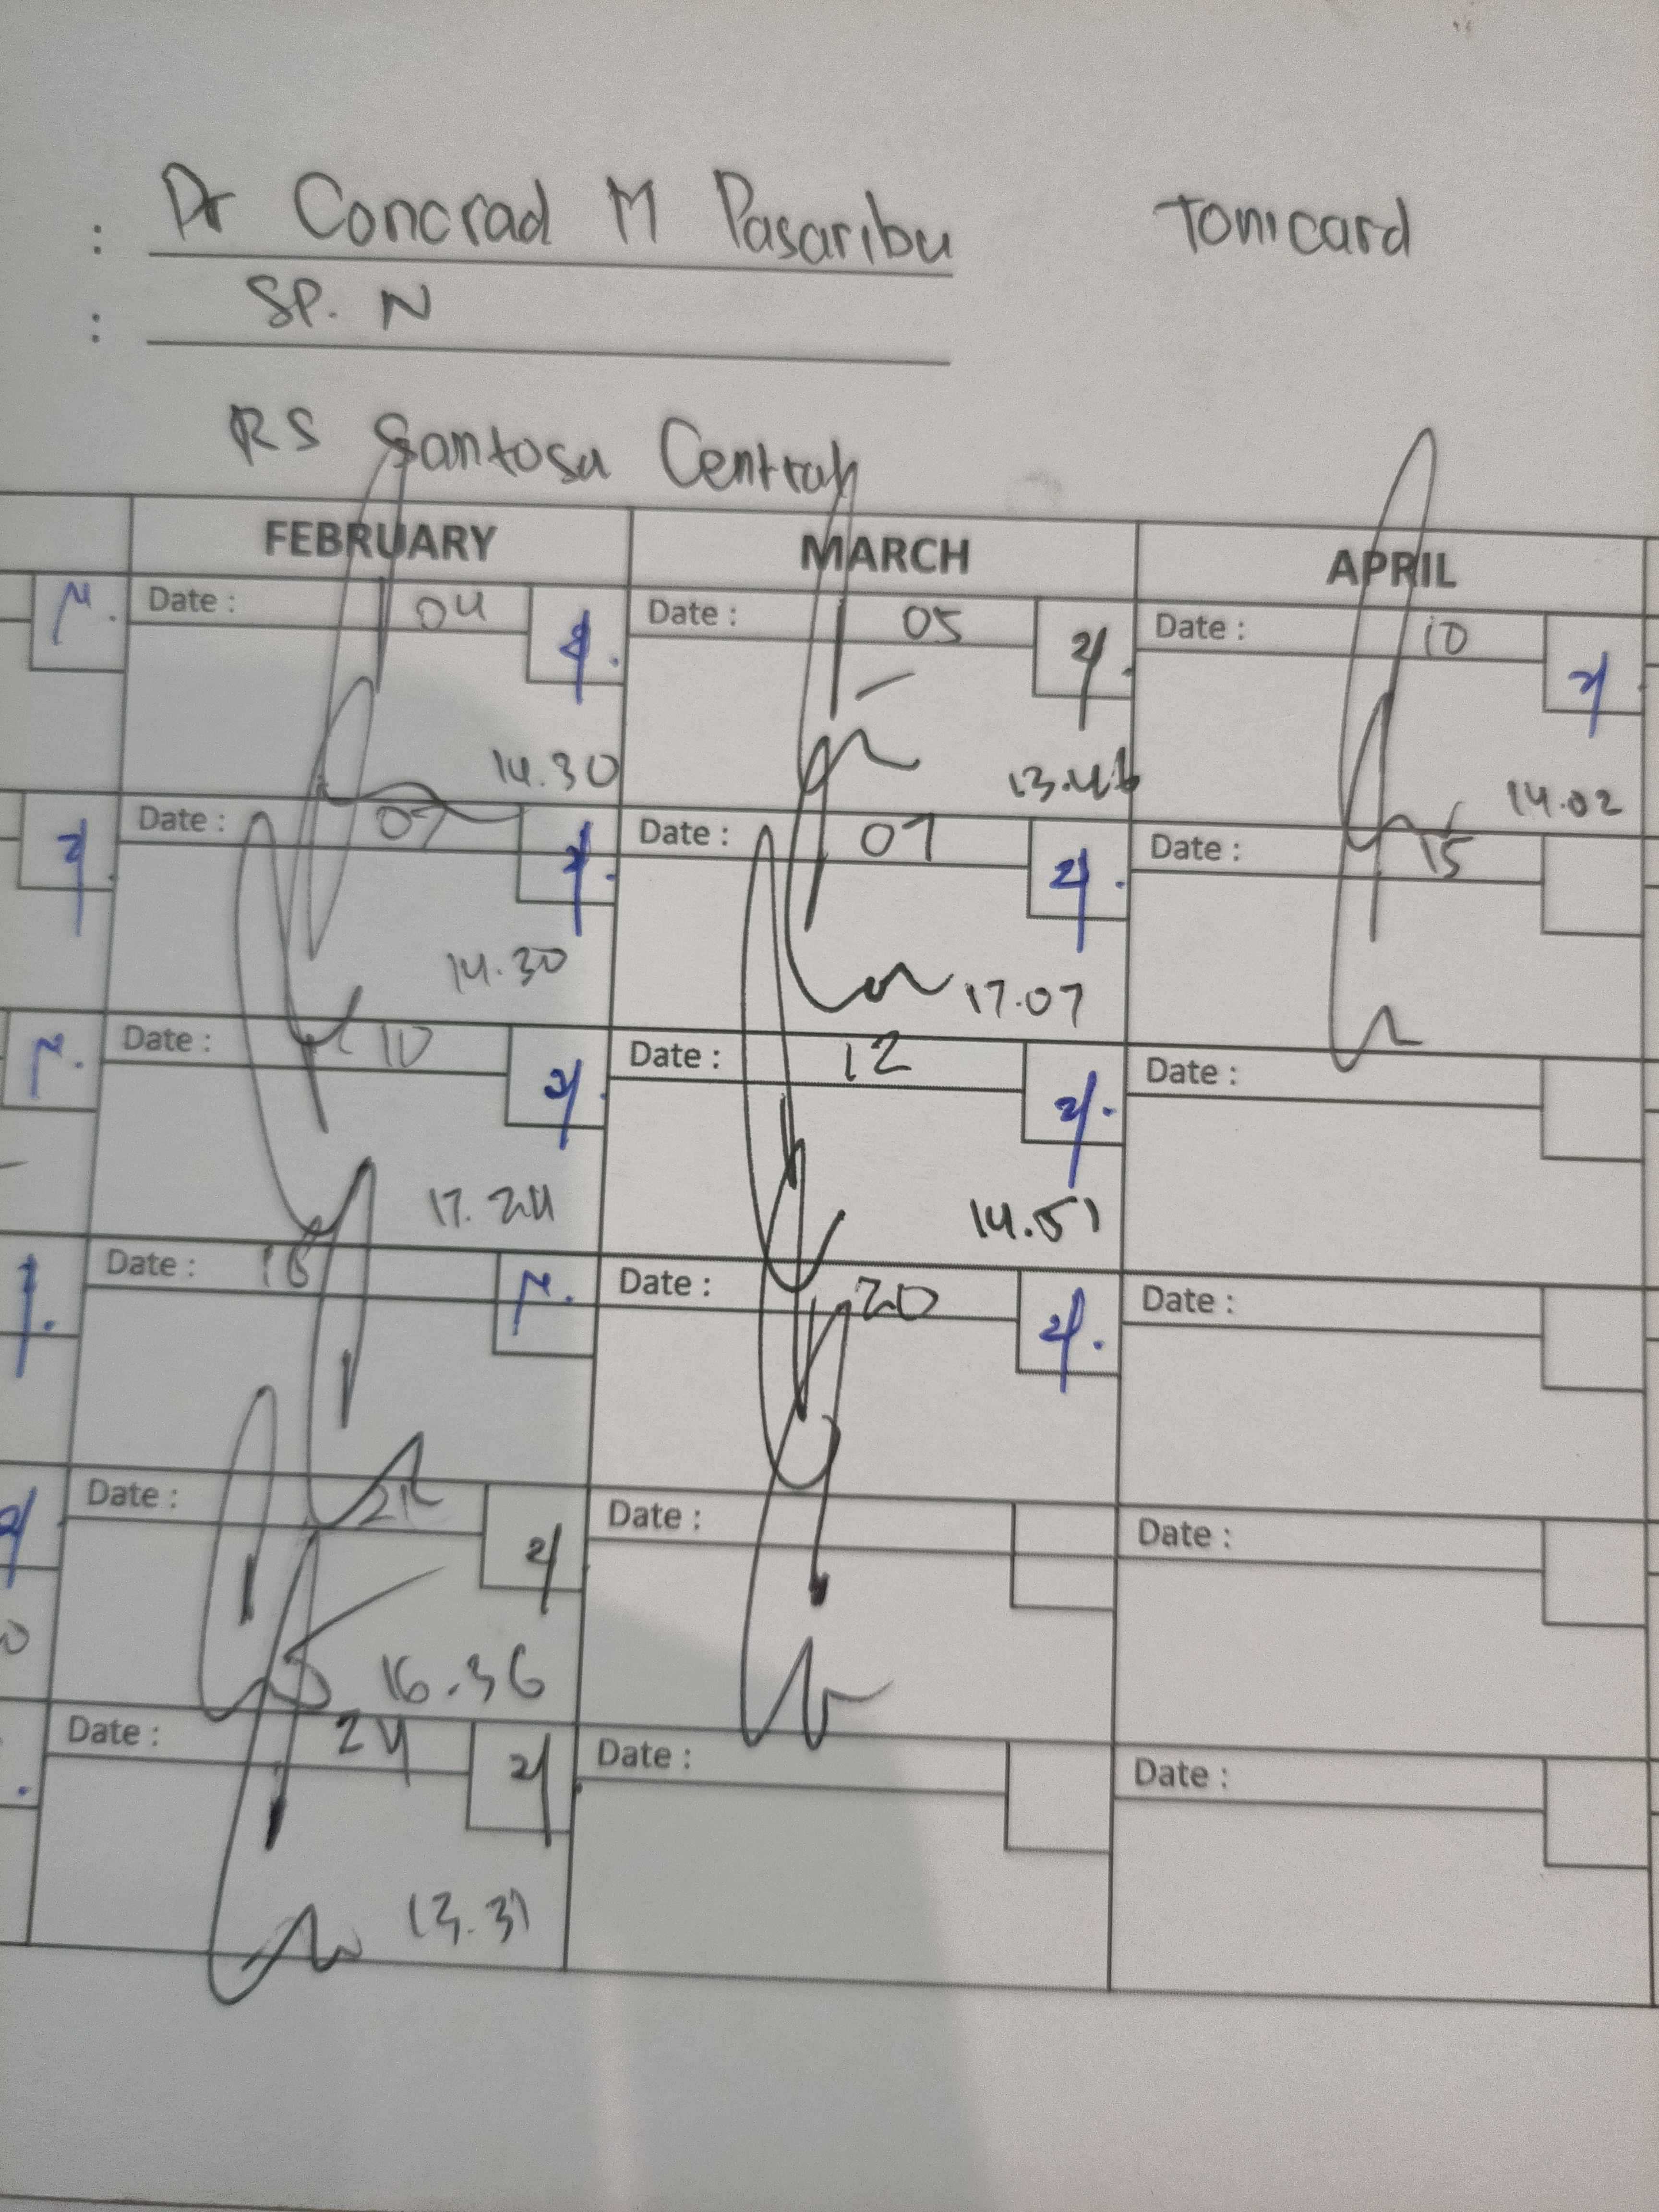 : Dr Concrad M Pasaribu Tonicard
: SP. N
RS Santosa Central
FEBRUARY MARCH APRIL
Date : 04 Date : 05 Date : 10
14.30 13.46 14.02
Date : 07 Date : 07 Date : 15
14.30 17.07
Date : 10 Date : 12 Date :
17.24 14.51
Date : 18 Date : 20 Date :
Date : 21 Date : Date :
16.36
Date : 24 Date : Date :
13.31